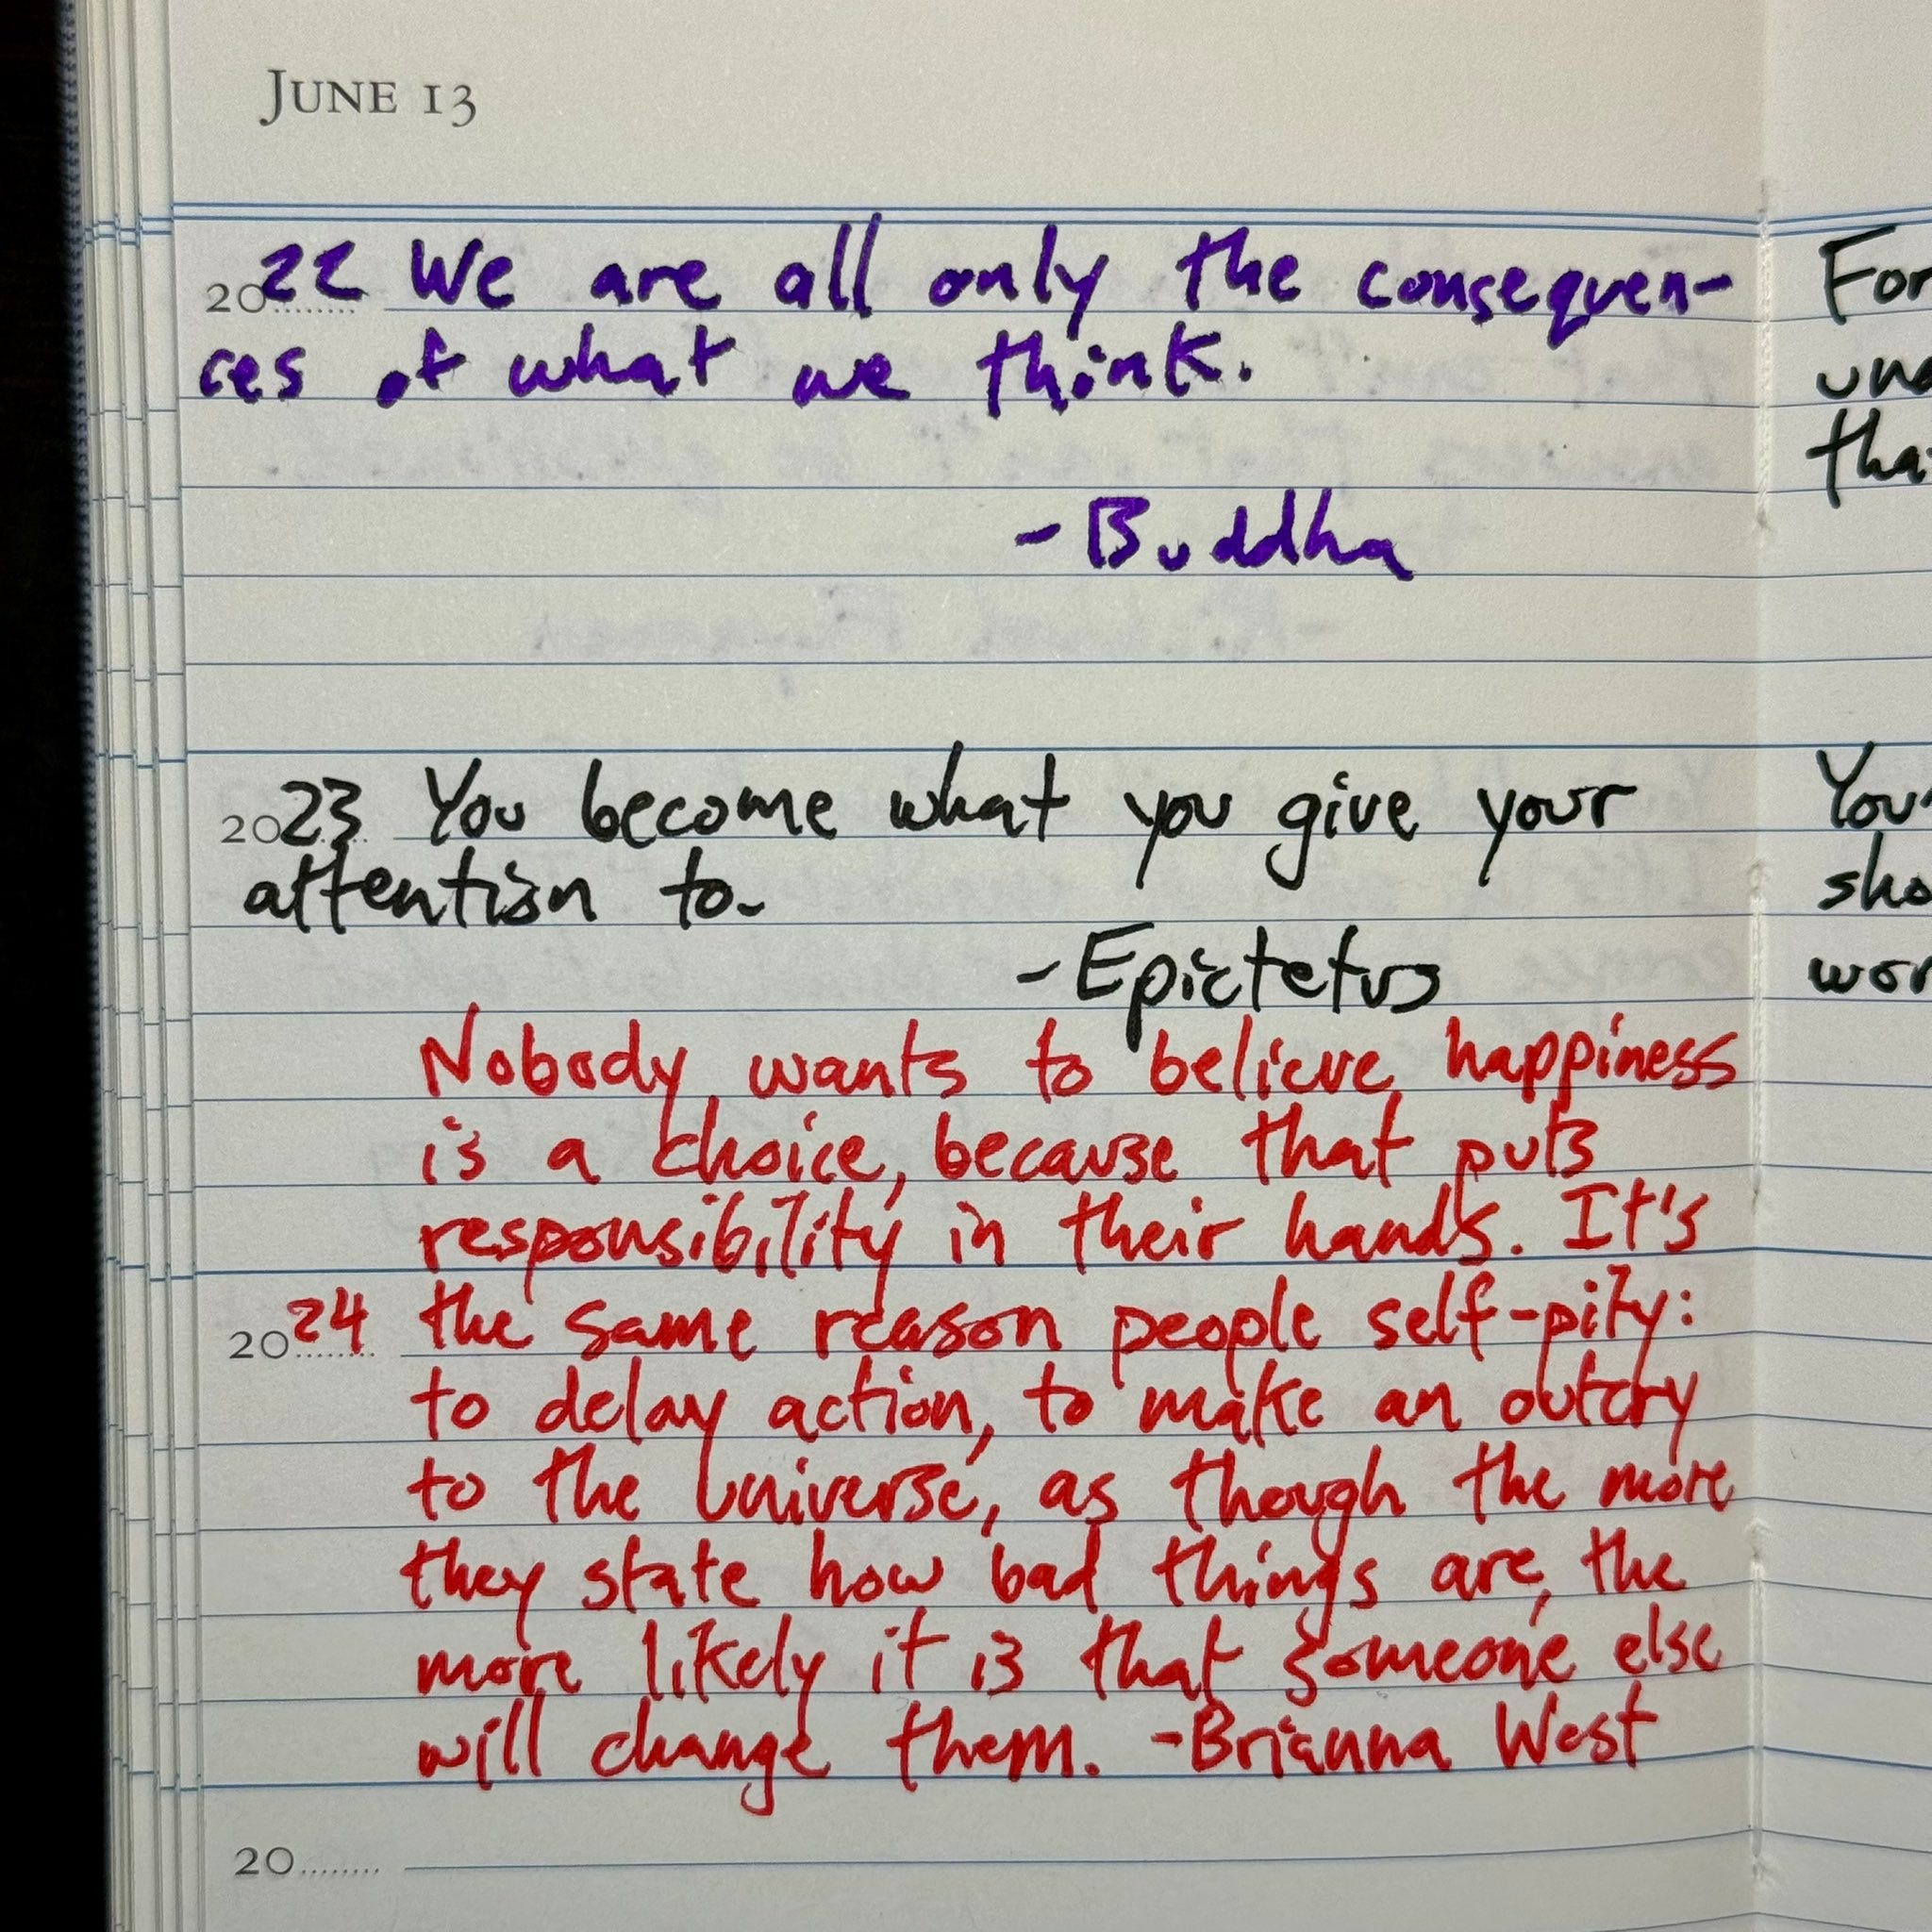 JUNE 13
2022 We are all only the consequen-
ces of what we think.
- Buddha
2023 You become what you give your
attention to.
- Epictetus
Nobody wants to believe happiness
is a choice, because that puts
responsibility in their hands. It's
2024 the same reason people self-pity:
to delay action, to make an outcry
to the universe, as though the more
they state how bad things are, the
more likely it is that someone else
will change them. -Brianna West
20........
For
You